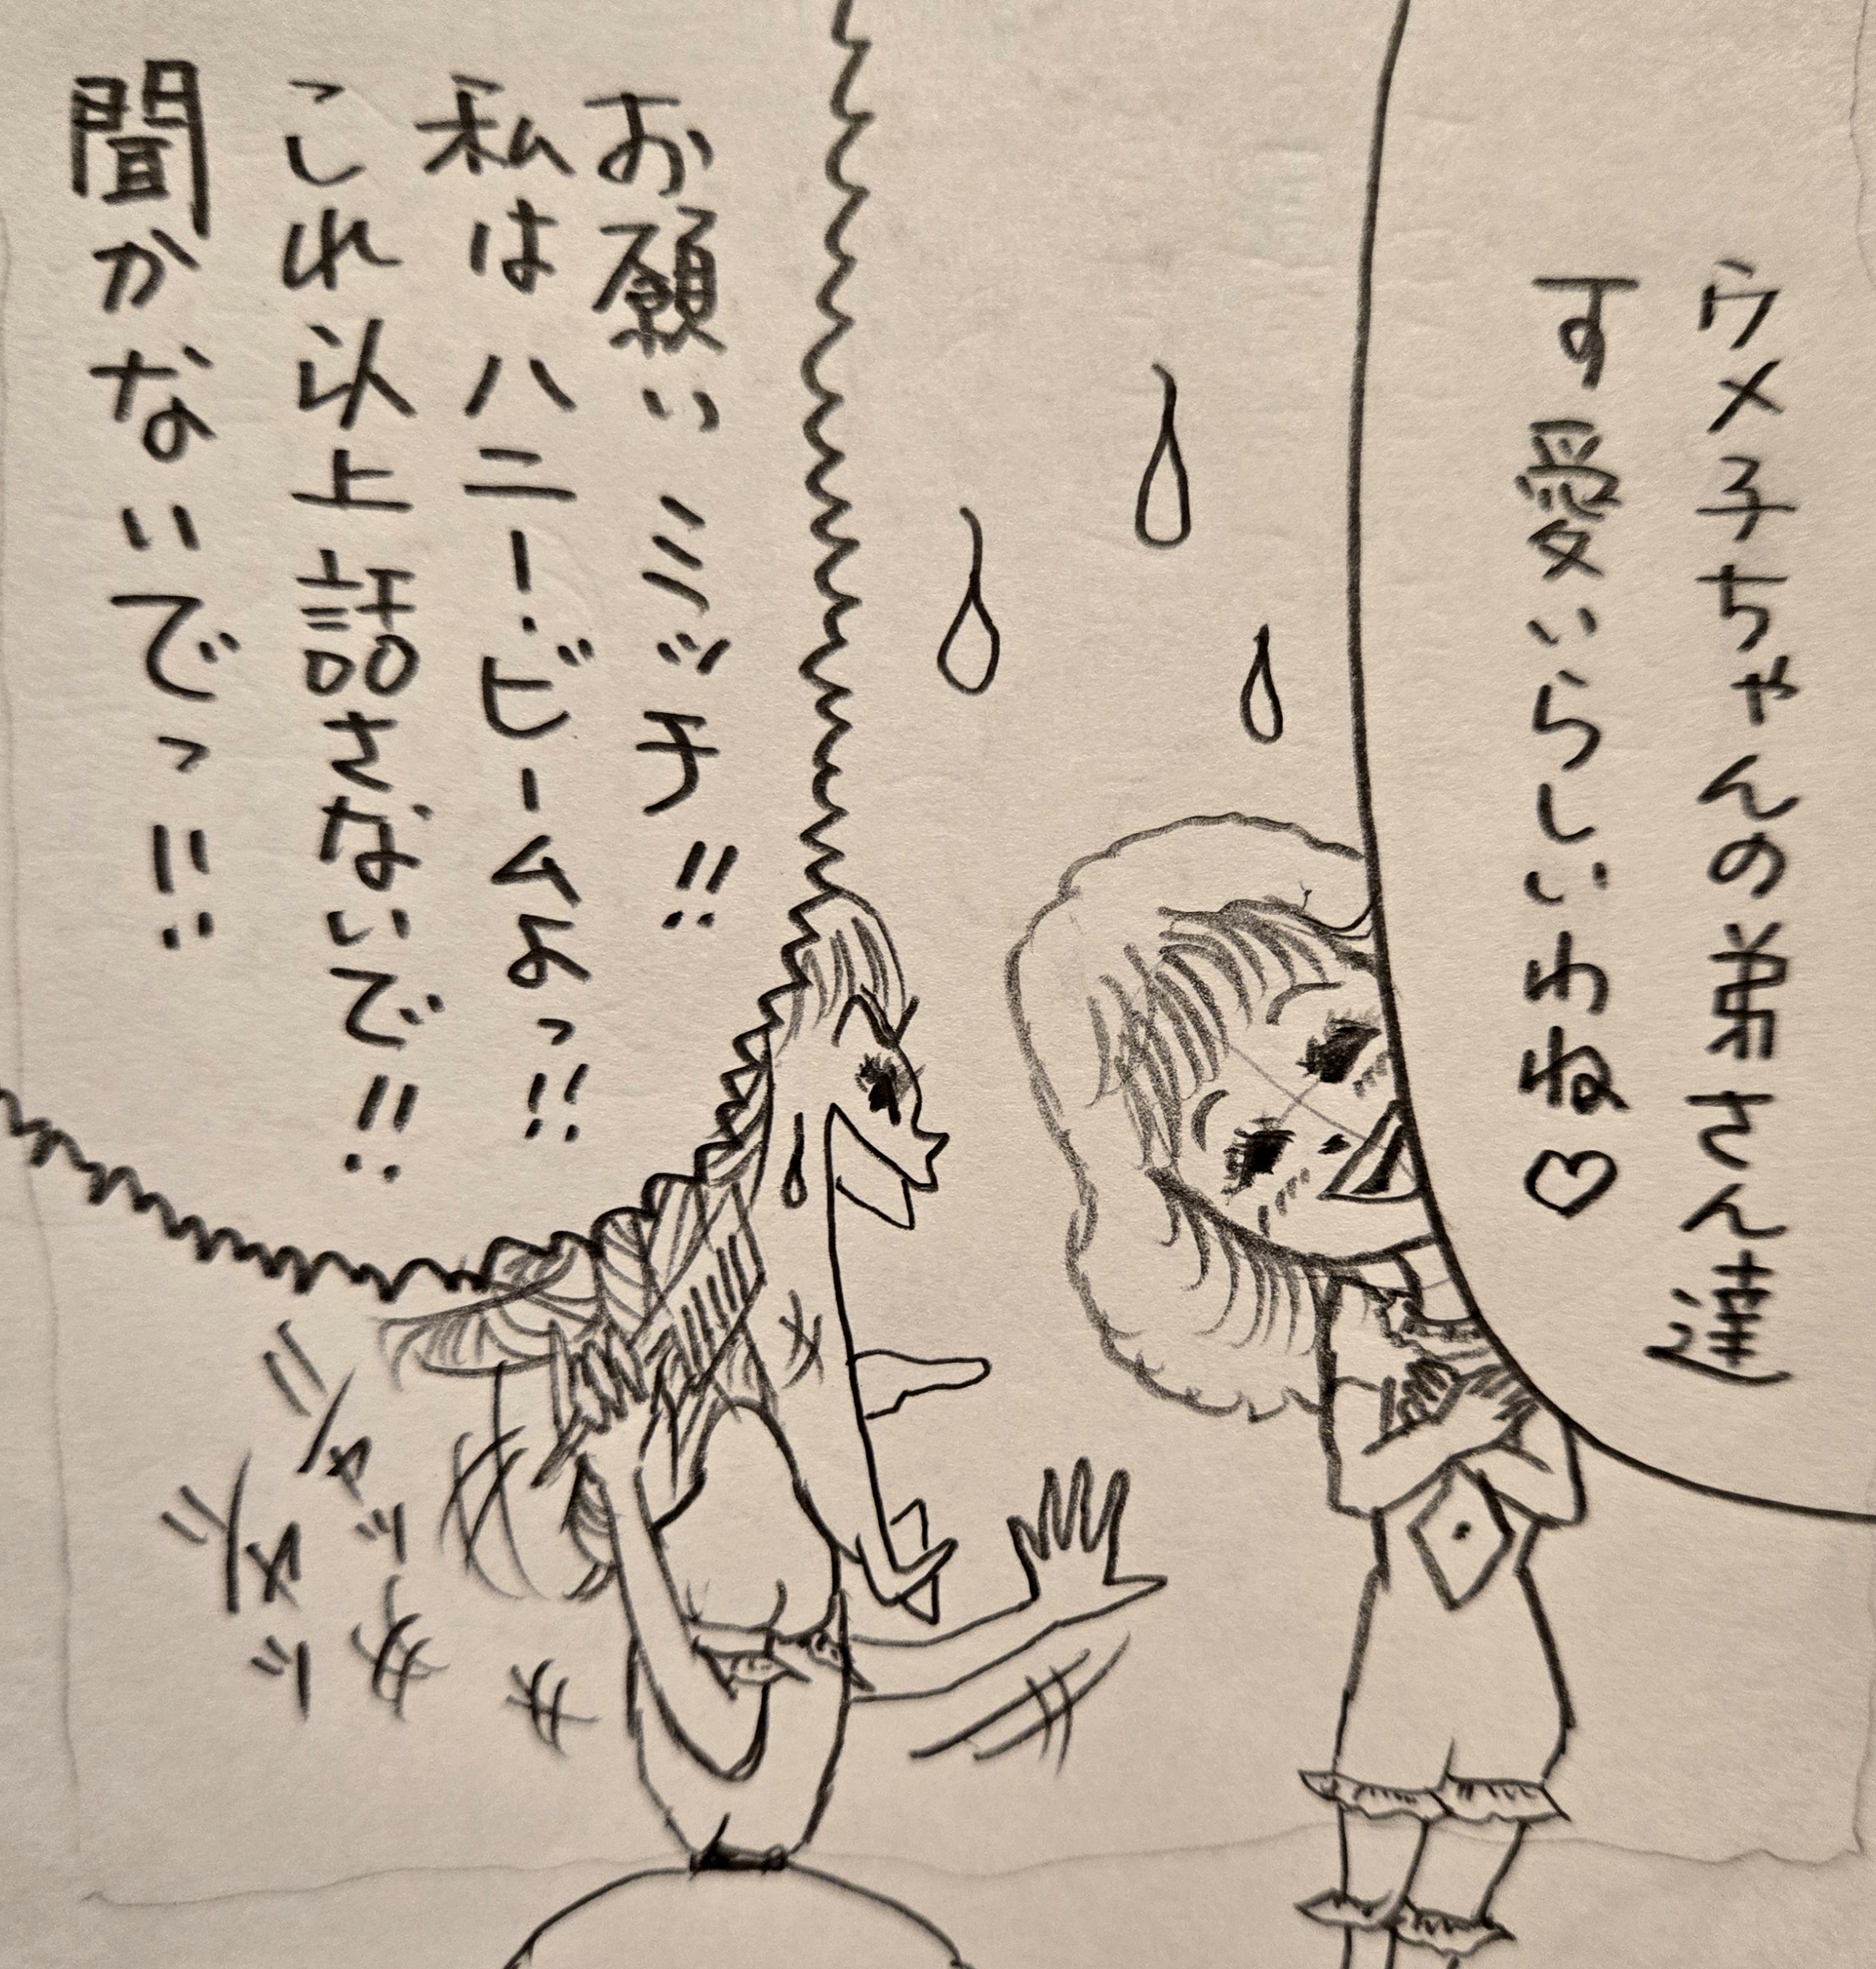 ウメ子ちゃんの弟さん達
す愛いらしいわね♡
お願いミッチ!!
私はハニー・ビームよっ!!
これ以上話さないで!!
聞かないでっ!!